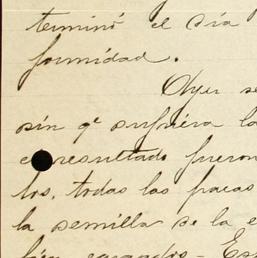 terminó el día
formidad.
Ayer se
sin qe sufriera la
el resultado fueron
tos, todas las pacas
la semilla de la e
bien cargados - Es